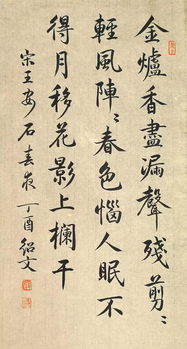 金爐香盡漏聲殘剪〻
輕風陣〻春色惱人眠不
得月移花影上欄干
宋王安石春夜 丁酉 紹文